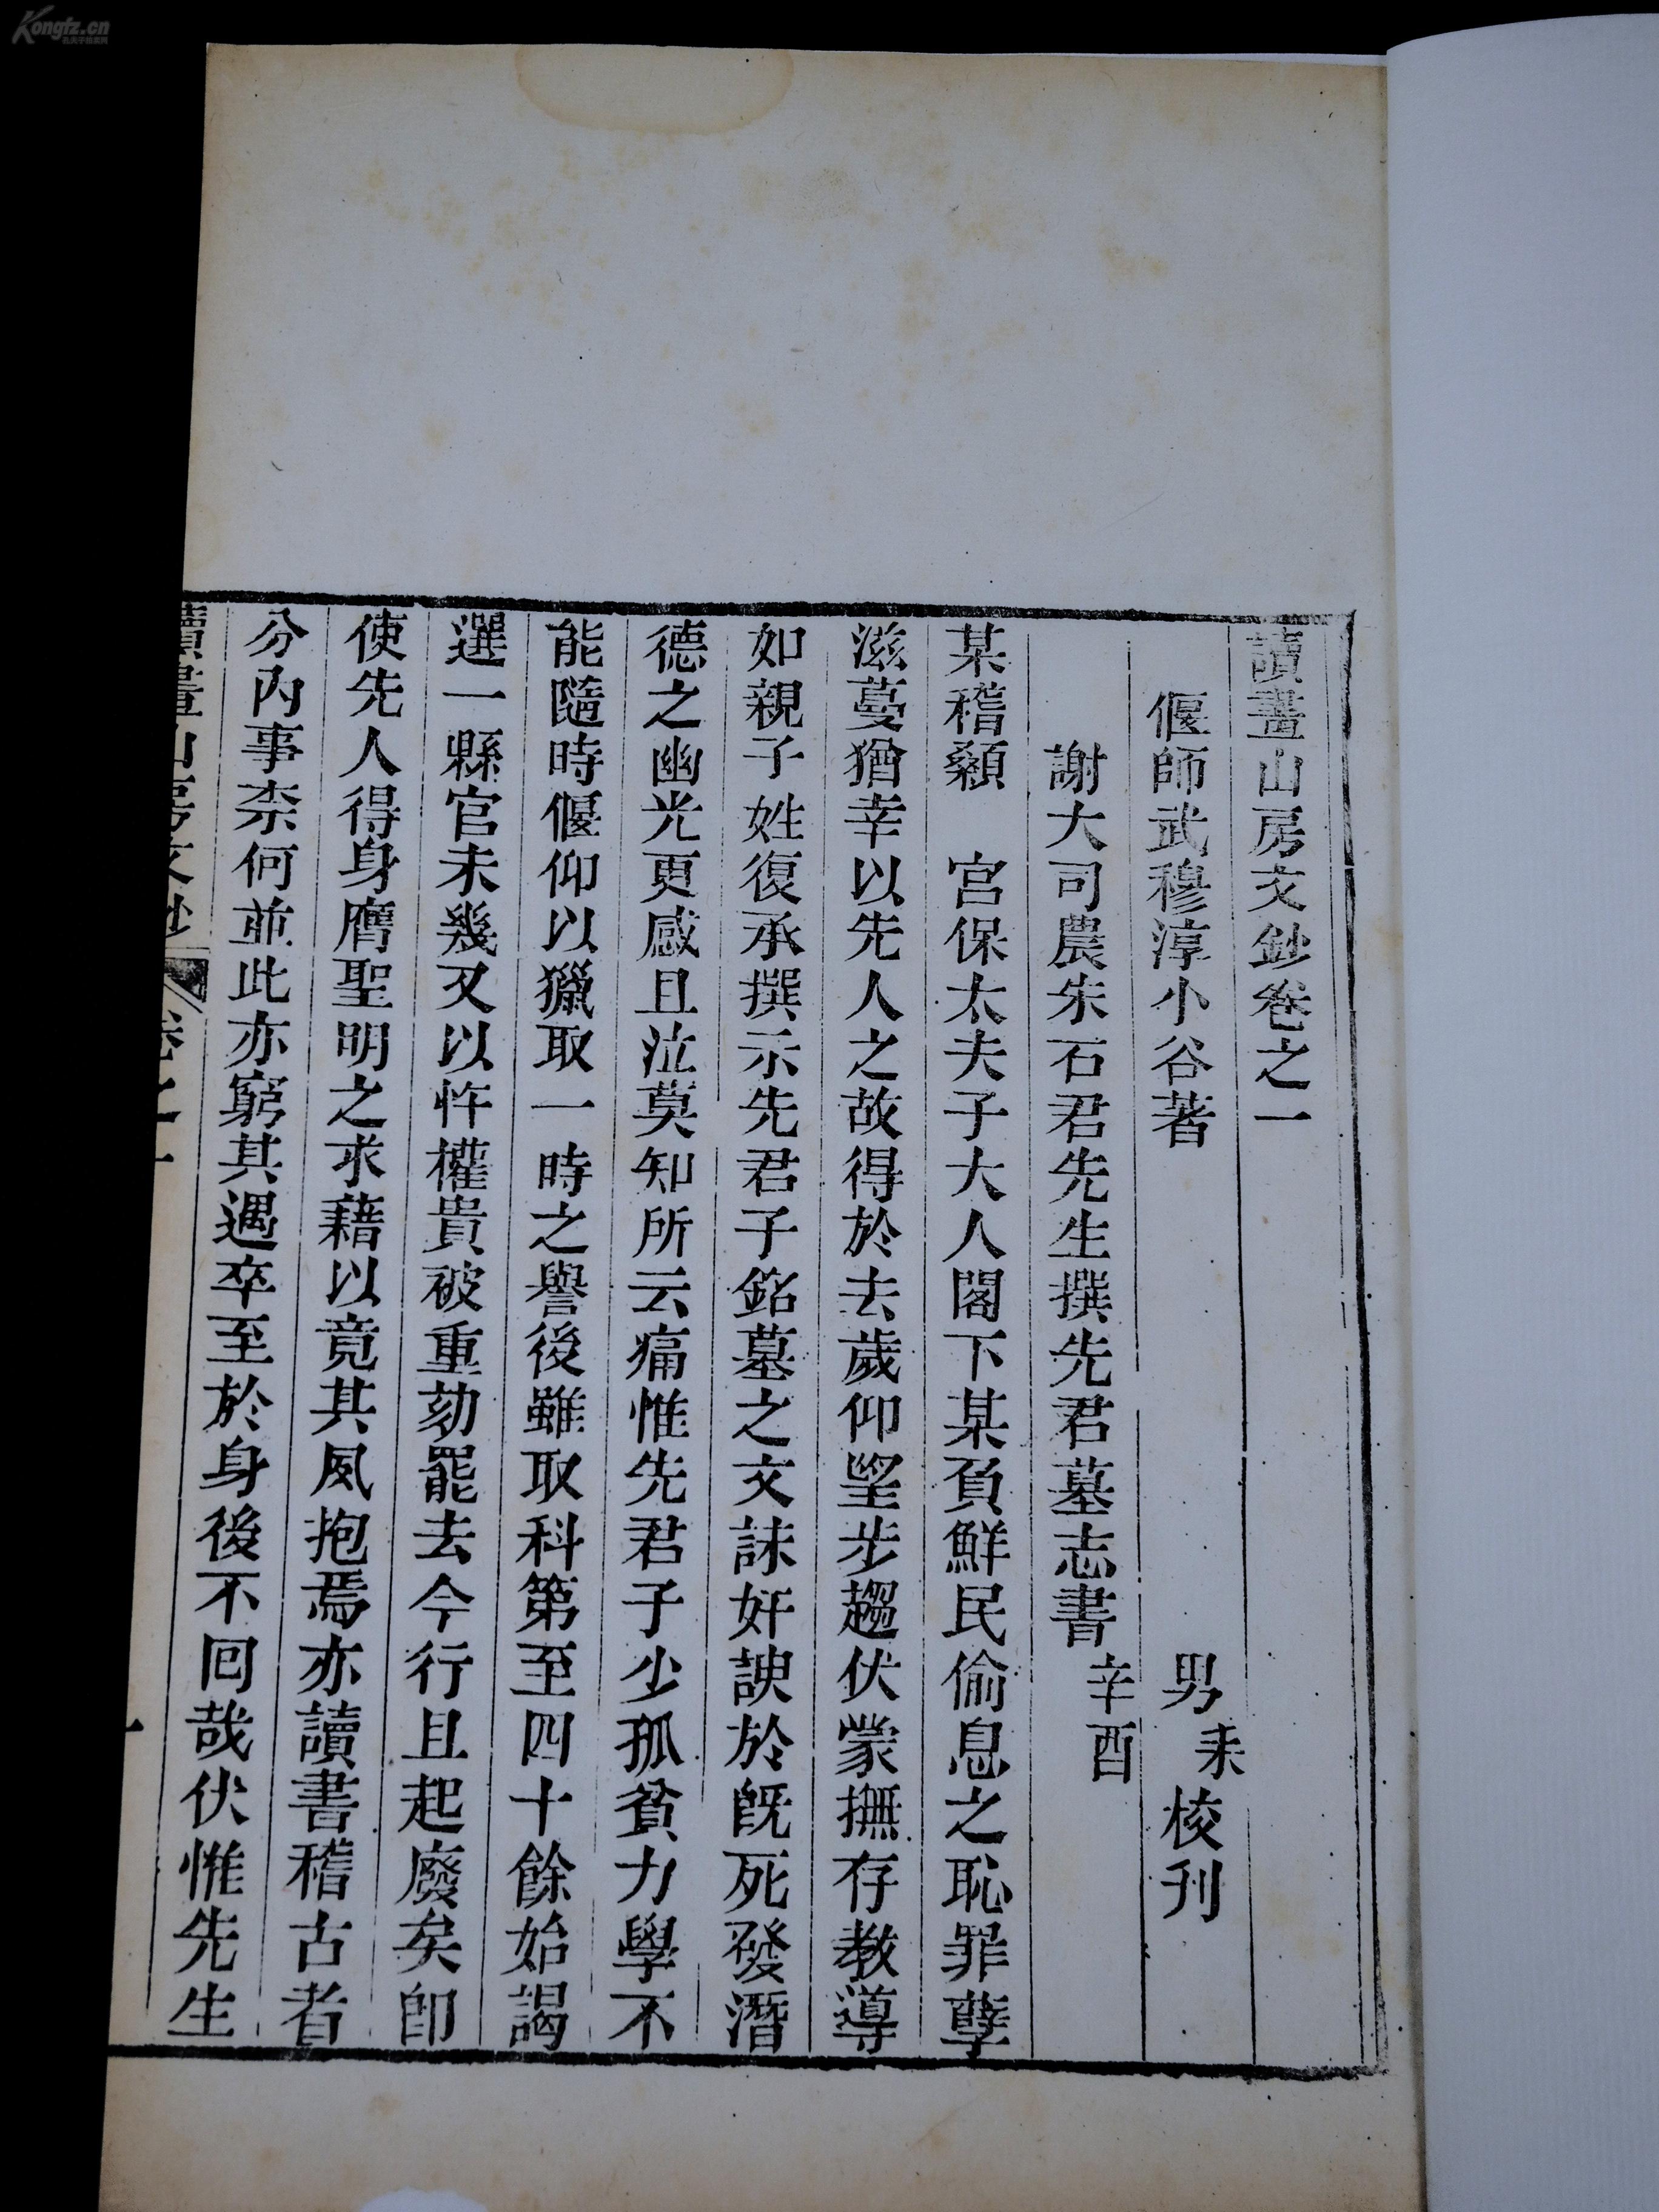 讀畫山房文鈔卷之一
偃師武穆淳小谷著 男耒校刊
謝大司農朱石君先生撰先君墓志書 辛酉
某稽顙 宮保太夫子大人閣下某負鮮民偷息之恥罪孽
滋蔓猶幸以先人之故得於去歲仰望步趨伏蒙撫存教導
如親子姓復承撰示先君子銘墓之文誅奸諛於既死發潛
德之幽光更感且泣莫知所云痛惟先君子少孤貧力學不
能隨時偃仰以獵取一時之譽後雖取科第至四十餘始謁
選一縣官未幾又以忤權貴被重劾罷去今行且起廢矣即
使先人得身膺聖明之求藉以竟其夙抱焉亦讀書稽古者
分內事柰何並此亦窮其遇卒至於身後不回哉伏惟先生
讀畫山房文鈔 卷之一 一
Kongfz.cn